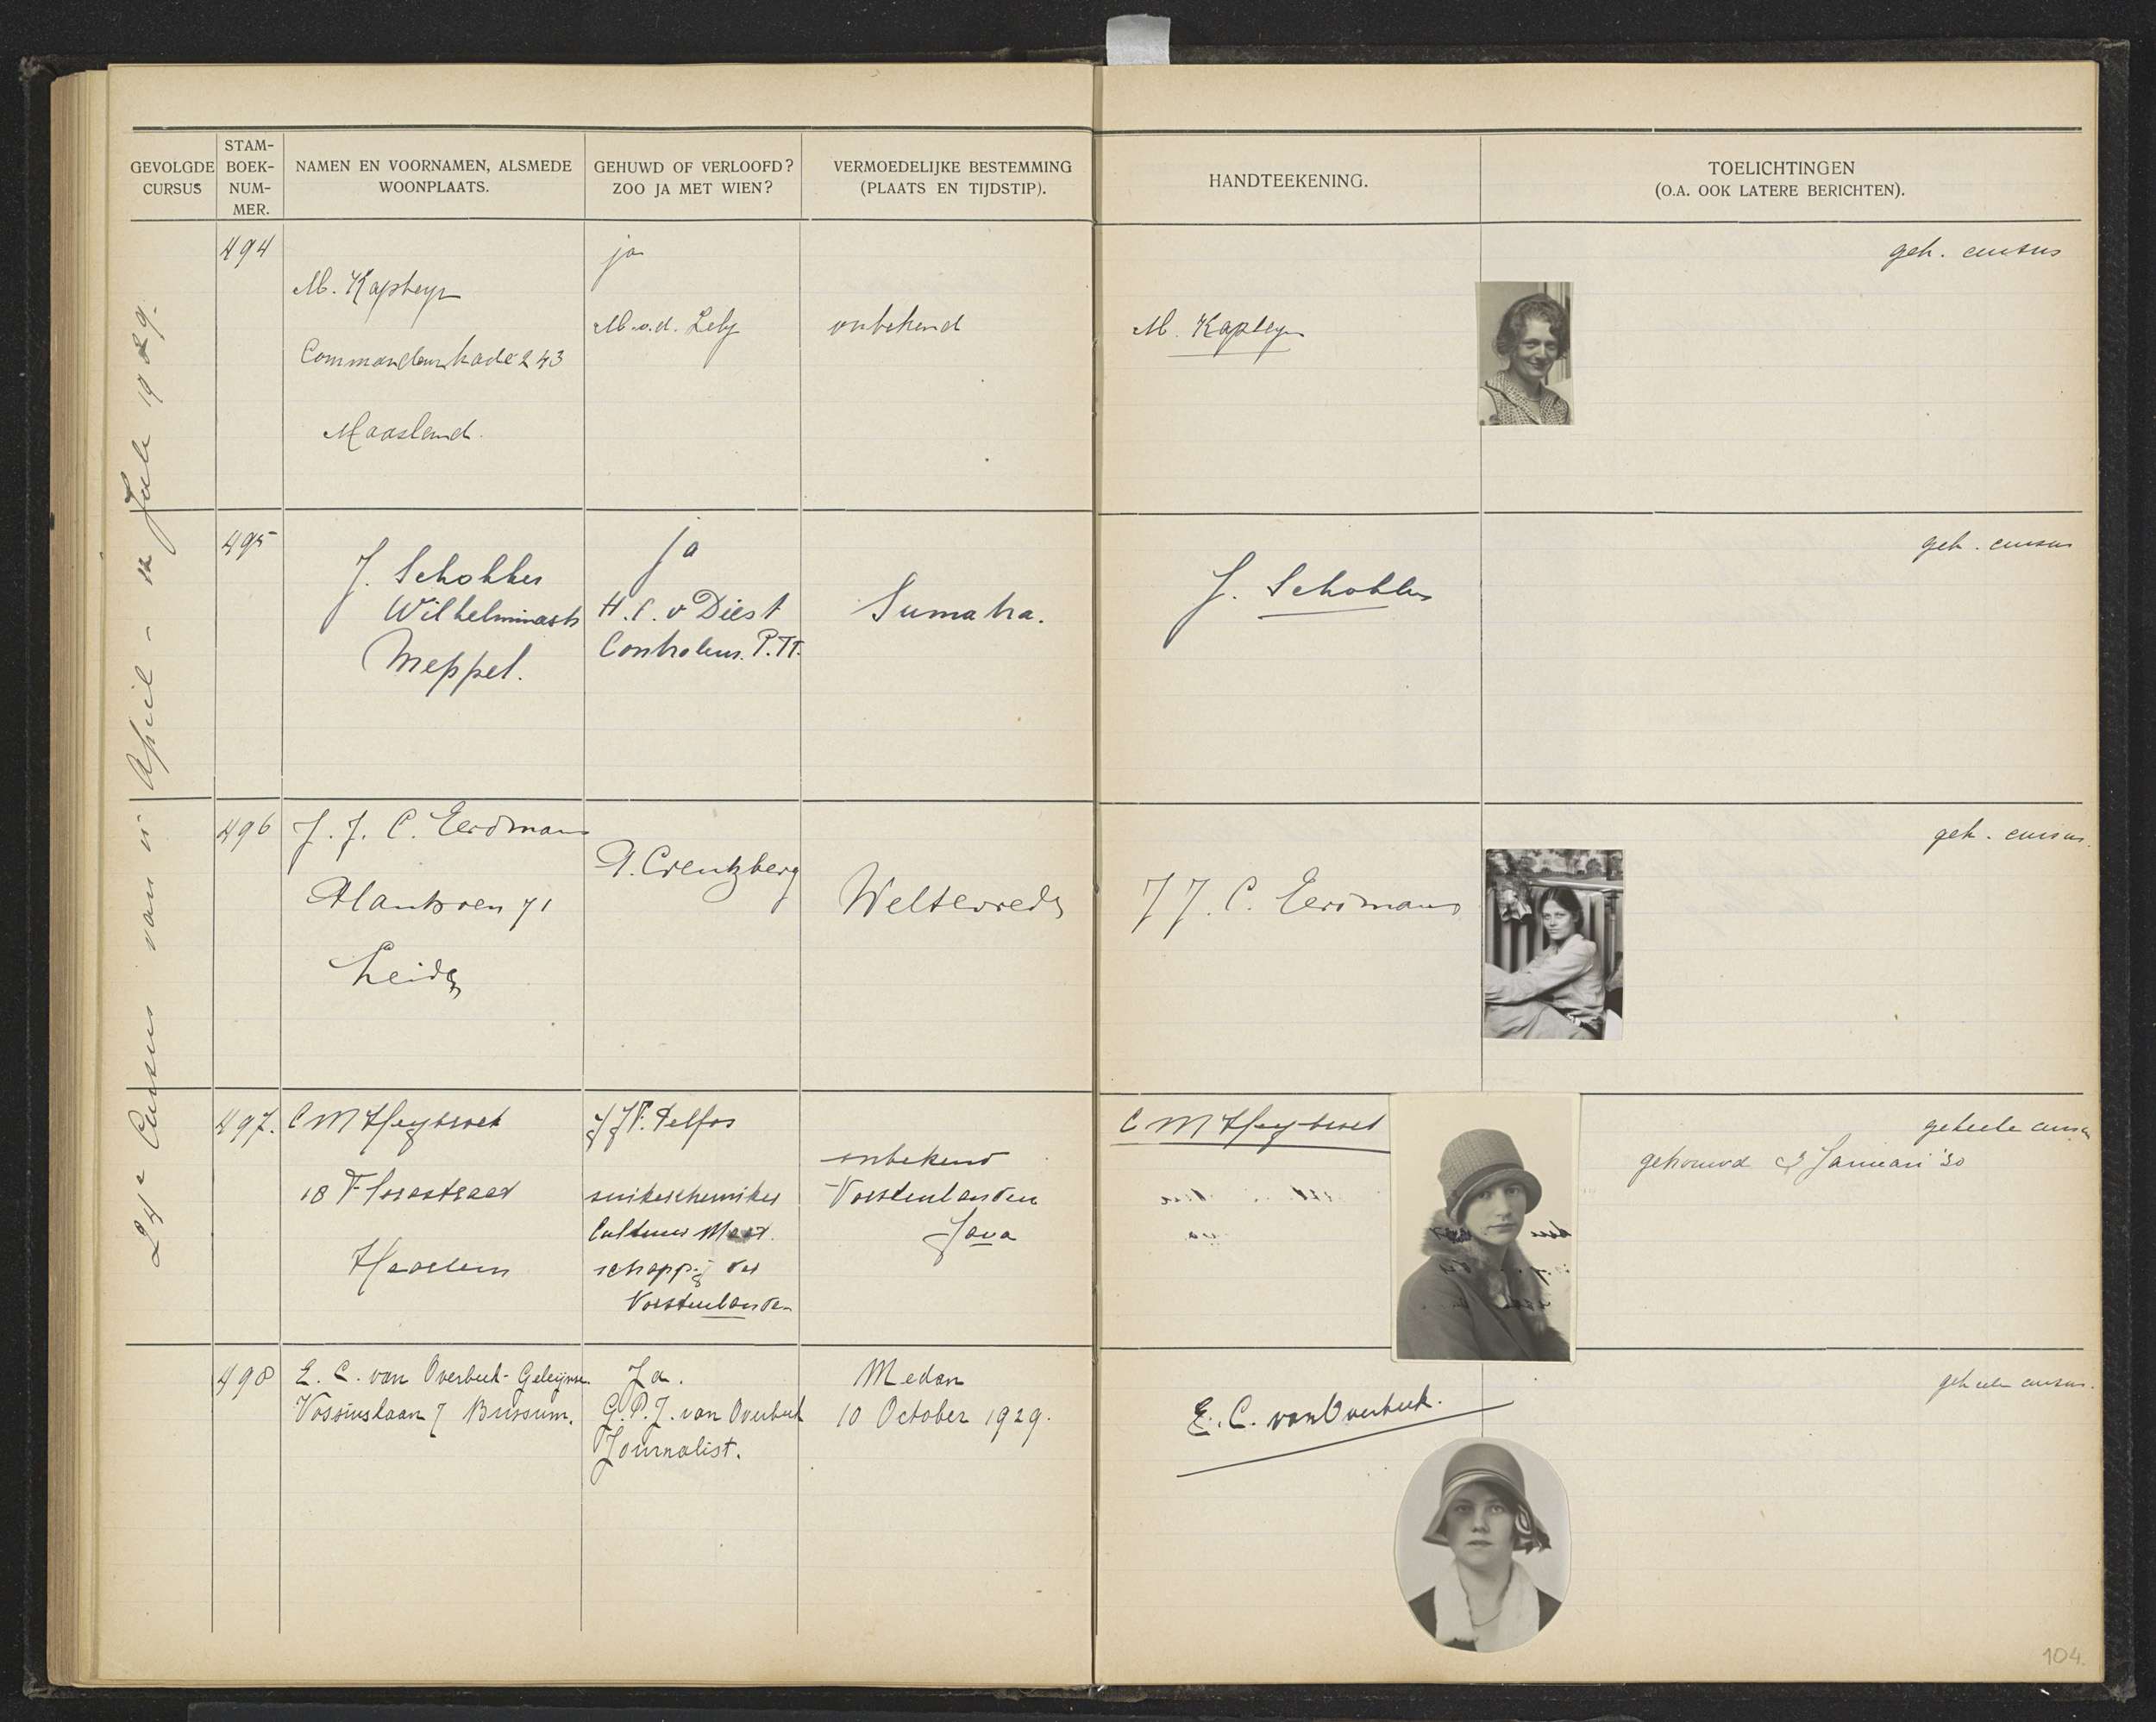 GEVOLGDE
CURSUS
STAM-
BOEK-
NUM-
MER.
NAMEN EN VOORNAMEN, ALSMEDE
WOONPLAATS.
GEHUWD OF VERLOOFD?
ZOO JA MET WIEN?
VERMOEDELIJKE BESTEMMING
(PLAATS EN TIJDSTIP).
HANDTEEKENING.
TOELICHTINGEN
(O.A. OOK LATERE BERICHTEN).
24e Cursus van 15 April - 12 Juli 1929.
494
M. Kapteyn
Commandeurkade 243
Maasland.
ja
M. v.d. Lely
onbekend
M. Kapteyn
geh. cursus
495
J. Schokker
Wilhelminastr
Meppel.
ja
H.C. v Diest
Controleur. P.T.T.
Sumatra.
J. Schokker
geh. cursus
496
J. J. C. Eerdmans
Plantsoen 71
Leiden
Creutzberg
Weltevreden
J J. C. Eerdmans
geh. cursus.
497.
C M Heybroek
18 Florastraat
Haarlem
J J F. Delfos
suikerchemiker
Cultuur Maat.
schappij der
Vorstenlanden
onbekend
Vorstenlanden
Java
C M Heybroek
geheele cursus
getrouwd 2 Januari '30
498
E. C. van Overbeek-Geleijnse.
Vossiuslaan 7 Bussum.
Ja.
G.P.J. van Overbeek
Journalist.
Medan
10 October 1929.
E. C. van Overbeek.
geheele cursus.
104.